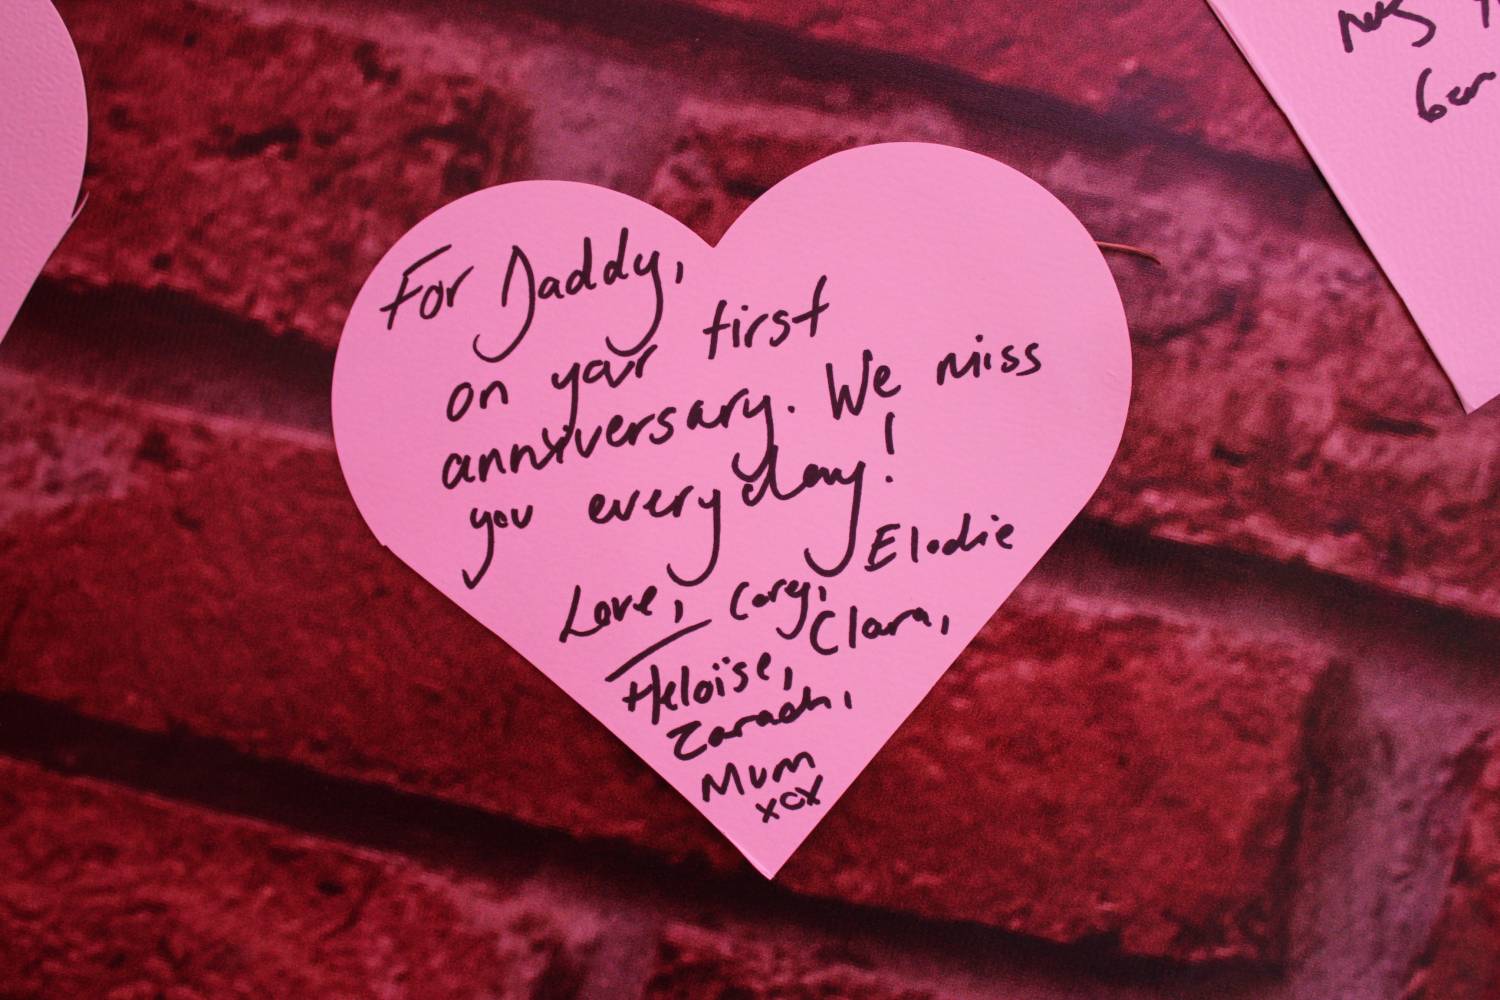 For Daddy,
on your first
anniversary. We miss
you every day!
Love, Cory, Elodie
Heloïse, Clara,
Zarach,
Mum
xox